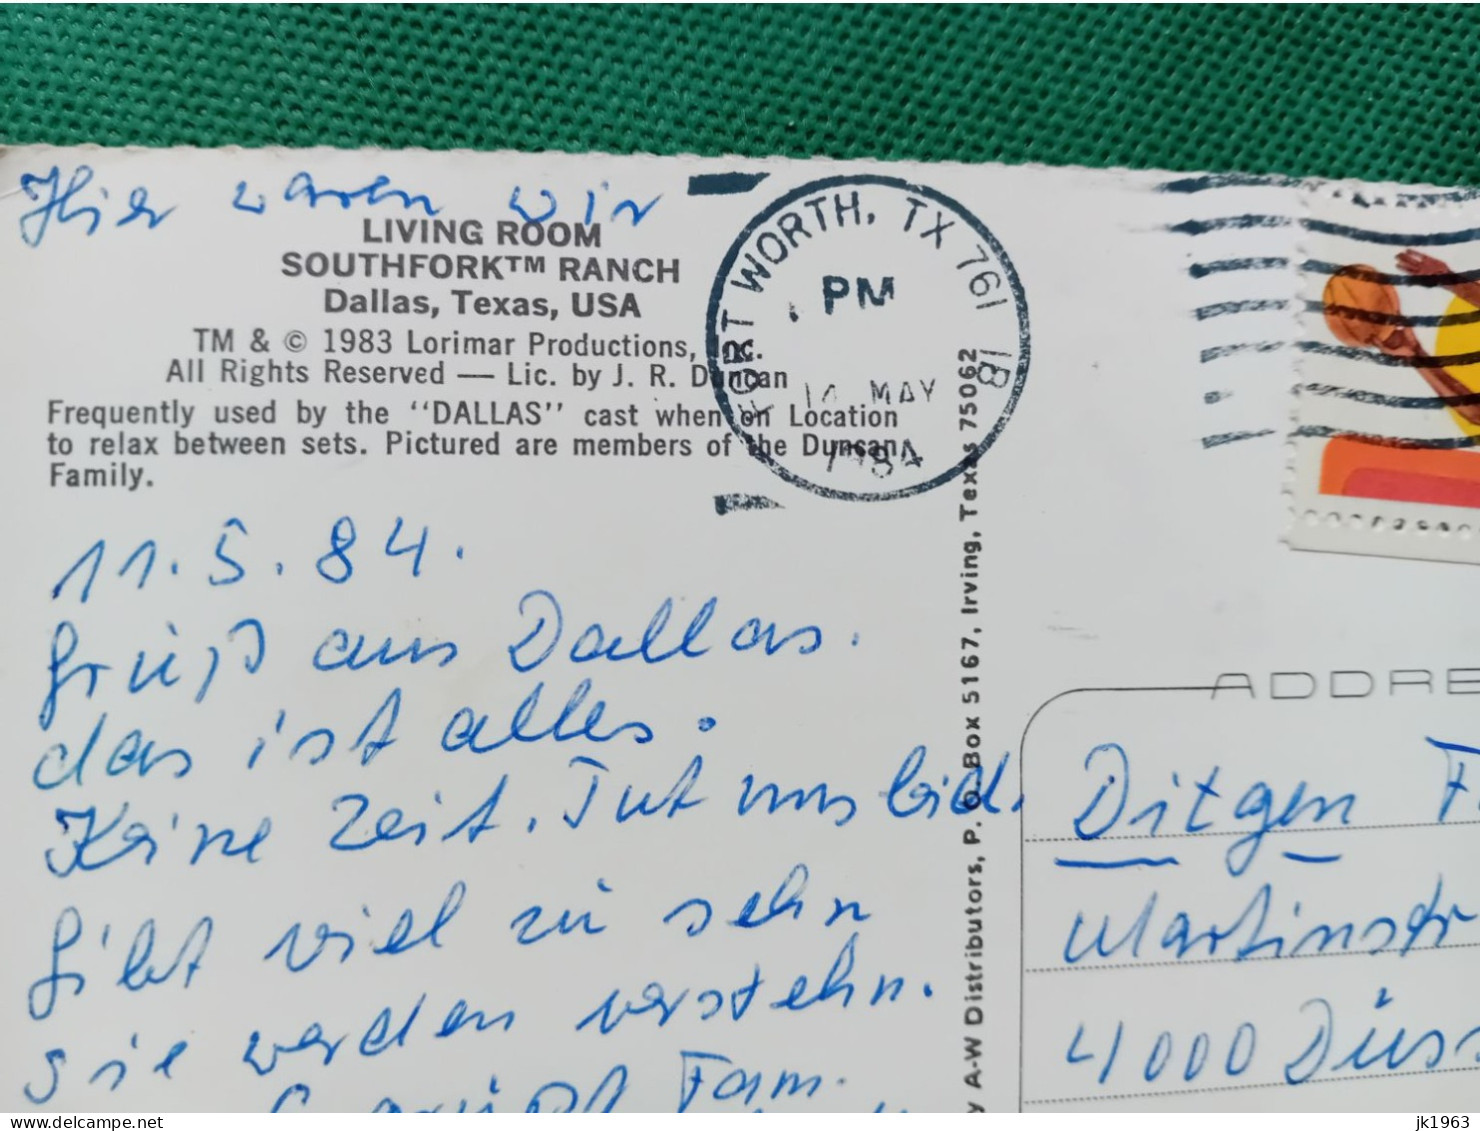 Hier waren wir
LIVING ROOM
SOUTHFORK™ RANCH
Dallas, Texas, USA
TM & © 1983 Lorimar Productions, Inc.
All Rights Reserved — Lic. by J. R. Duncan
Frequently used by the "DALLAS" cast when on Location
to relax between sets. Pictured are members of the Duncan
Family.
FORT WORTH, TX 761
PM
14 MAY
1984
1B
11.5.84.
Gruß aus Dallas.
das ist alles.
Keine Zeit. Tut uns leid.
Gibt viel zu sehn
sie werden verstehn.
Gruß Fam.
y A-W Distributors, P. O. Box 5167, Irving, Texas 75062
ADDRE
Ditgen F
Martinstr
4000 Düss
jk1963